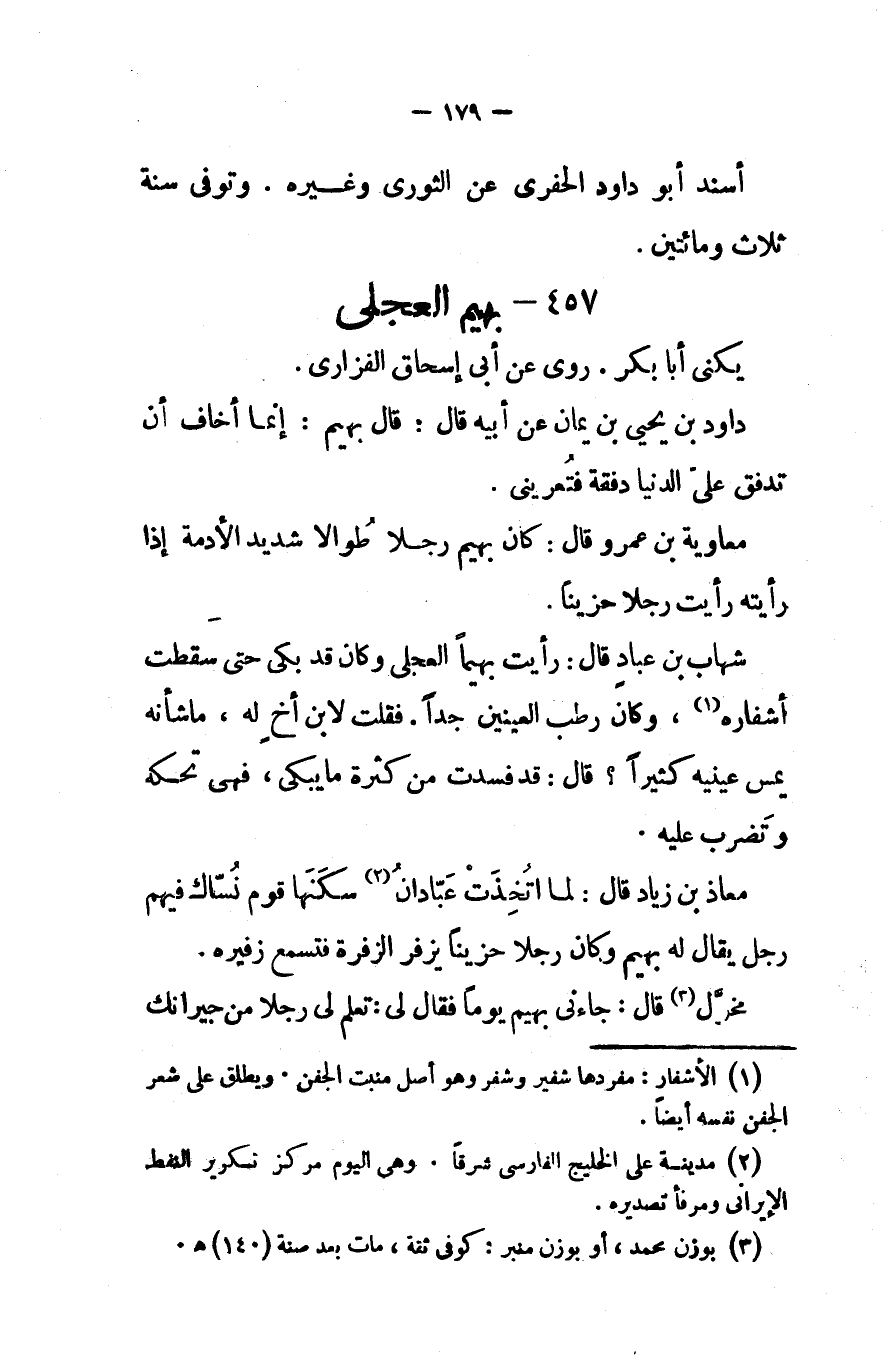 — ١٧٩ —
أسند أبو داود الحفرى عن الثورى وغـــيره . وتوفى سنة
ثلاث ومائتين .
٤٥٧ — بهيم العجلى
يكنى أبا بكر . روى عن أبى إسحاق الفزارى .
داود بن يحيى بن يمان عن أبيه قال : قال بهيم : إنمـا أخاف أن
تدفق علىّ الدنيا دفقة فتُعرينى .
معاوية بن عمرو قال : كان بهيم رجـلا طُوالا شديد الأدمة إذا
رأيته رأيت رجلا حزيناً .
شهاب بن عبادٍ قال : رأيت بهيماً العجلى وكان قد بكى حتى سقطت
أشفاره(١) ، وكان رطب العينين جداً . فقلت لابن أخٍ له ، ماشأنه
يمس عينيه كثيراً ؟ قال : قد فسدت من كثرة مايبكى ، فهى تحكه
وتَضرب عليه .
معاذ بن زياد قال : لمـا اتُخِذَتْ عَبّادانُ(٢) سكَنَها قوم نُسّاك فيهم
رجل يقال له بهيم وكان رجلا حزيناً يزفر الزفرة فتسمع زفيره .
مخوَّل(٣) قال : جاءنى بهيم يوماً فقال لى : تعلم لى رجلا من جيرانك
(١) الأشفار : مفردها شفير وشفر وهو أصل منبت الجفن . ويطلق على شعر
الجفن نفسه أيضاً .
(٢) مدينـة على الخليج الفارسى شرقاً . وهى اليوم مركز تكرير النفط
الإيرانى ومرفأ تصديره .
(٣) بوزن محمد ، أو بوزن منبر : كوفى ثقة ، مات بعد سنة (١٤٠) هـ .